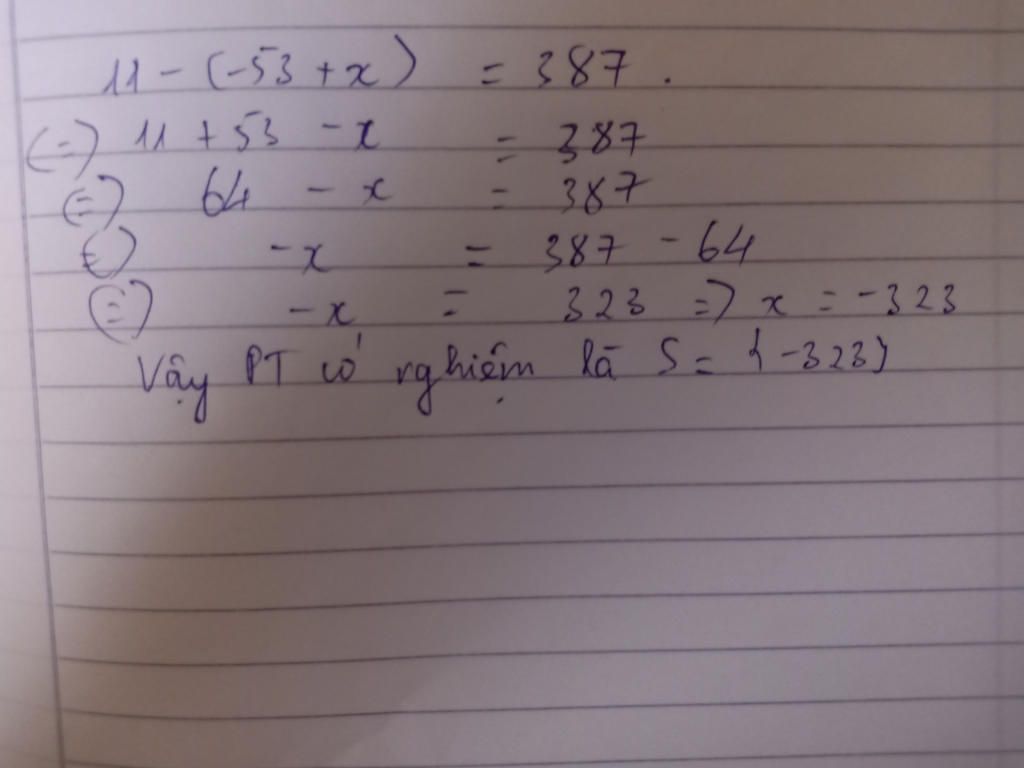 11 - (-53 + x) = 387.
(=) 11 + 53 - x = 387
(=) 64 - x = 387
(=) -x = 387 - 64
(=) -x = 323 => x = -323
Vậy PT có nghiệm là S = {-323}